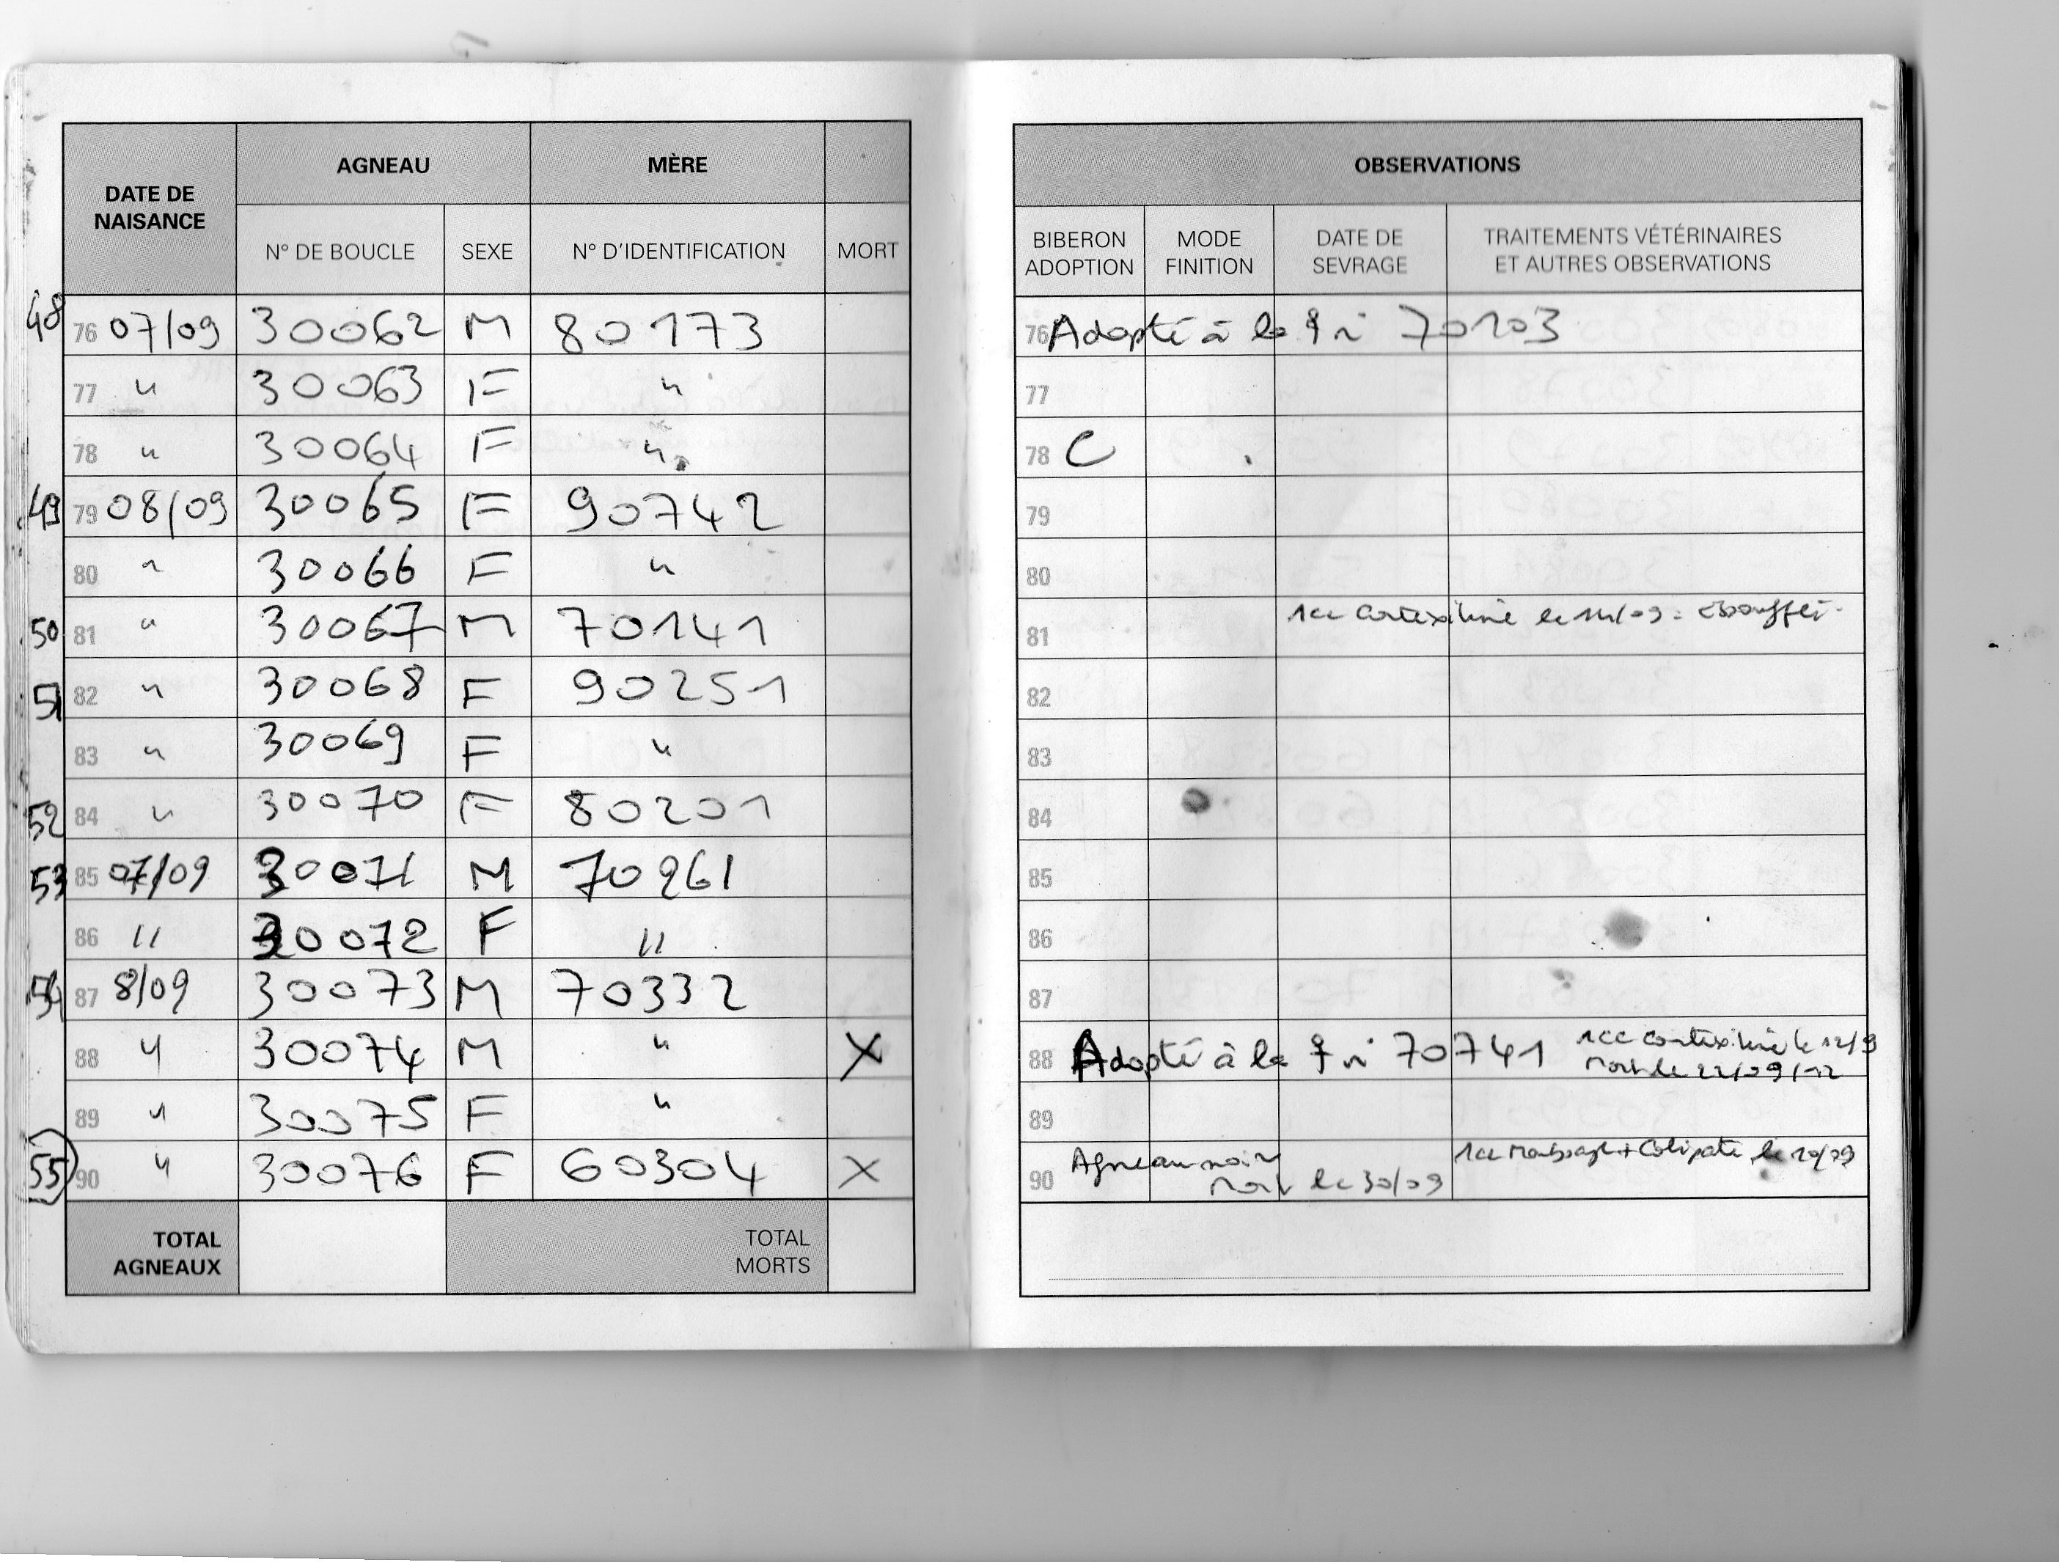 DATE DE NAISANCE AGNEAU MÈRE
N° DE BOUCLE SEXE N° D'IDENTIFICATION MORT
48 76 07/09 30062 M 80173
77 " 30063 F "
78 " 30064 F "
49 79 08/09 30065 F 90742
80 " 30066 F "
50 81 " 30067 M 70141
51 82 " 30068 F 90251
83 " 30069 F "
52 84 " 30070 F 80201
53 85 07/09 30071 M 70261
86 " 30072 F "
54 87 8/09 30073 M 70332
88 " 30074 M " X
89 " 30075 F "
55 90 " 30076 F 60304 X
TOTAL AGNEAUX TOTAL MORTS
OBSERVATIONS
BIBERON ADOPTION MODE FINITION DATE DE SEVRAGE TRAITEMENTS VÉTÉRINAIRES ET AUTRES OBSERVATIONS
76 Adopté à la ♀ n° 70103
77
78 C
79
80
81 1cc cortexiline le 14/09 :
82
83
84
85
86
87
88 Adopté à la ♀ n° 70741 1cc cortexiline le 12/9
Mort le 22/09/12
89
90 Agneau noir 1cc + le 10/09
Mort le 30/09